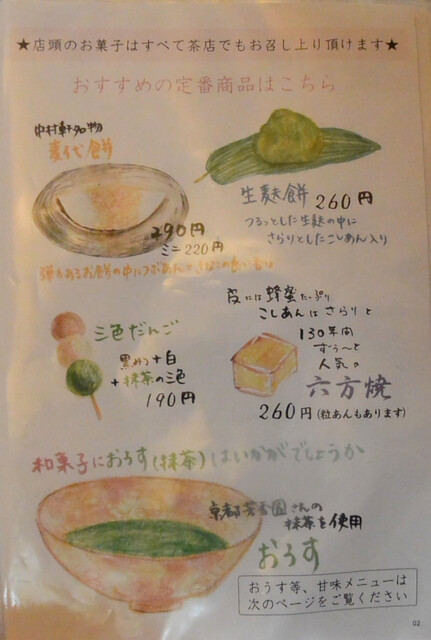 ★店頭のお菓子はすべて茶店でもお召し上り頂けます★
おすすめの定番商品はこちら
中村軒名物
麦代餅
290円
ミニ220円
弾力あるお餅の中につぶあんときなこの良い香り
生麩餅 260円
つるっとした生麩の中に
さらりとしたこしあん入り
三色だんご
黒みつ+白
+抹茶の三色
190円
皮には蜂蜜たっぷり
こしあんはさらりと
130年間
ずぅ〜と
人気の
六方焼
260円(粒あんもあります)
和菓子におうす(抹茶)はいかがでしょうか
京都芳香園さんの
抹茶を使用
おうす
おうす等、甘味メニューは
次のページをご覧ください
02